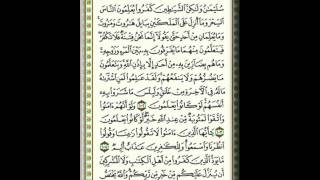 سُلَيْمَٰنُ وَلَٰكِنَّ ٱلشَّيَٰطِينَ كَفَرُوا۟ يُعَلِّمُونَ ٱلنَّاسَ
ٱلسِّحْرَ وَمَآ أُنزِلَ عَلَى ٱلْمَلَكَيْنِ بِبَابِلَ هَٰرُوتَ وَمَٰرُوتَ
وَمَا يُعَلِّمَانِ مِنْ أَحَدٍ حَتَّىٰ يَقُولَآ إِنَّمَا نَحْنُ فِتْنَةٌ فَلَا تَكْفُرْ
فَيَتَعَلَّمُونَ مِنْهُمَا مَا يُفَرِّقُونَ بِهِۦ بَيْنَ ٱلْمَرْءِ وَزَوْجِهِۦ
وَمَا هُم بِضَآرِّينَ بِهِۦ مِنْ أَحَدٍ إِلَّا بِإِذْنِ ٱللَّهِ وَيَتَعَلَّمُونَ
مَا يَضُرُّهُمْ وَلَا يَنفَعُهُمْ وَلَقَدْ عَلِمُوا۟ لَمَنِ ٱشْتَرَىٰهُ
مَا لَهُۥ فِى ٱلْءَاخِرَةِ مِنْ خَلَٰقٍ وَلَبِئْسَ مَا شَرَوْا۟ بِهِۦٓ
أَنفُسَهُمْ لَوْ كَانُوا۟ يَعْلَمُونَ ١٠٢ وَلَوْ أَنَّهُمْ ءَامَنُوا۟
وَٱتَّقَوْا۟ لَمَثُوبَةٌ مِّنْ عِندِ ٱللَّهِ خَيْرٌ لَّوْ كَانُوا۟ يَعْلَمُونَ
١٠٣ يَٰٓأَيُّهَا ٱلَّذِينَ ءَامَنُوا۟ لَا تَقُولُوا۟ رَٰعِنَا وَقُولُوا۟
ٱنظُرْنَا وَٱسْمَعُوا۟ وَلِلْكَٰفِرِينَ عَذَابٌ أَلِيمٌ ١٠٤
مَّا يَوَدُّ ٱلَّذِينَ كَفَرُوا۟ مِنْ أَهْلِ ٱلْكِتَٰبِ وَلَا ٱلْمُشْرِكِينَ
أَن يُنَزَّلَ عَلَيْكُم مِّنْ خَيْرٍ مِّن رَّبِّكُمْ وَٱللَّهُ يَخْتَصُّ